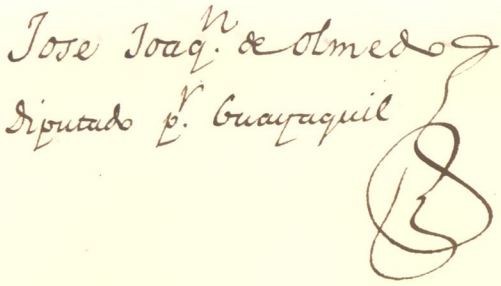 Jose Joaq.n de Olmedo
Diputado p.r Guayaquil